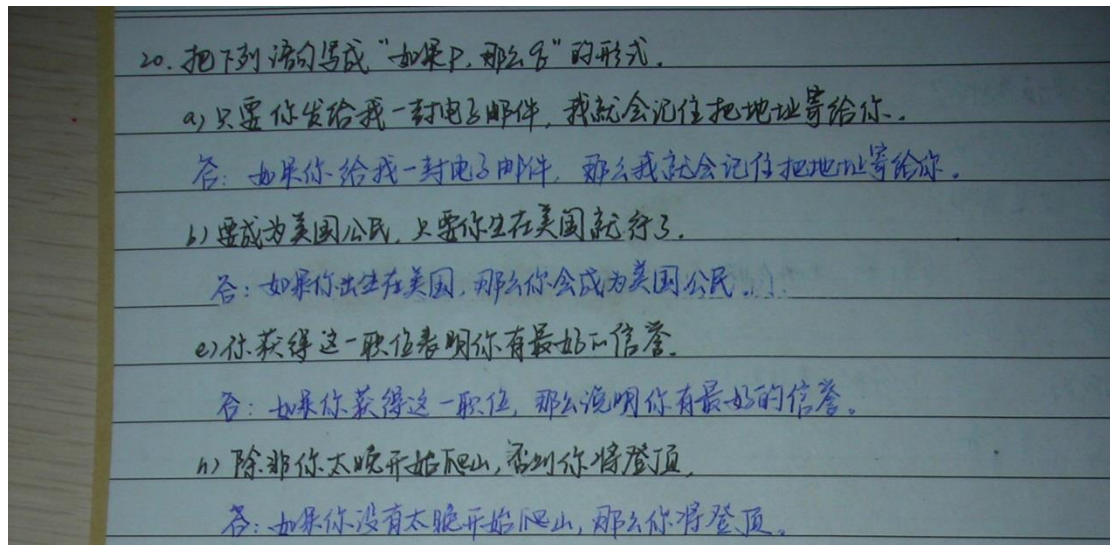 20. 把下列语句写成“如果P,那么q”的形式.
a) 只要你发给我一封电子邮件, 我就会记住把地址寄给你.
答: 如果你给我一封电子邮件, 那么我就会记住把地址寄给你.
b) 要成为美国公民, 只要你生在美国就行了.
答: 如果你出生在美国, 那么你会成为美国公民.
e) 你获得这一职位表明你有最好的信誉.
答: 如果你获得这一职位, 那么说明你有最好的信誉.
h) 除非你太晚开始爬山, 否则你将登顶.
答: 如果你没有太晚开始爬山, 那么你将登顶.